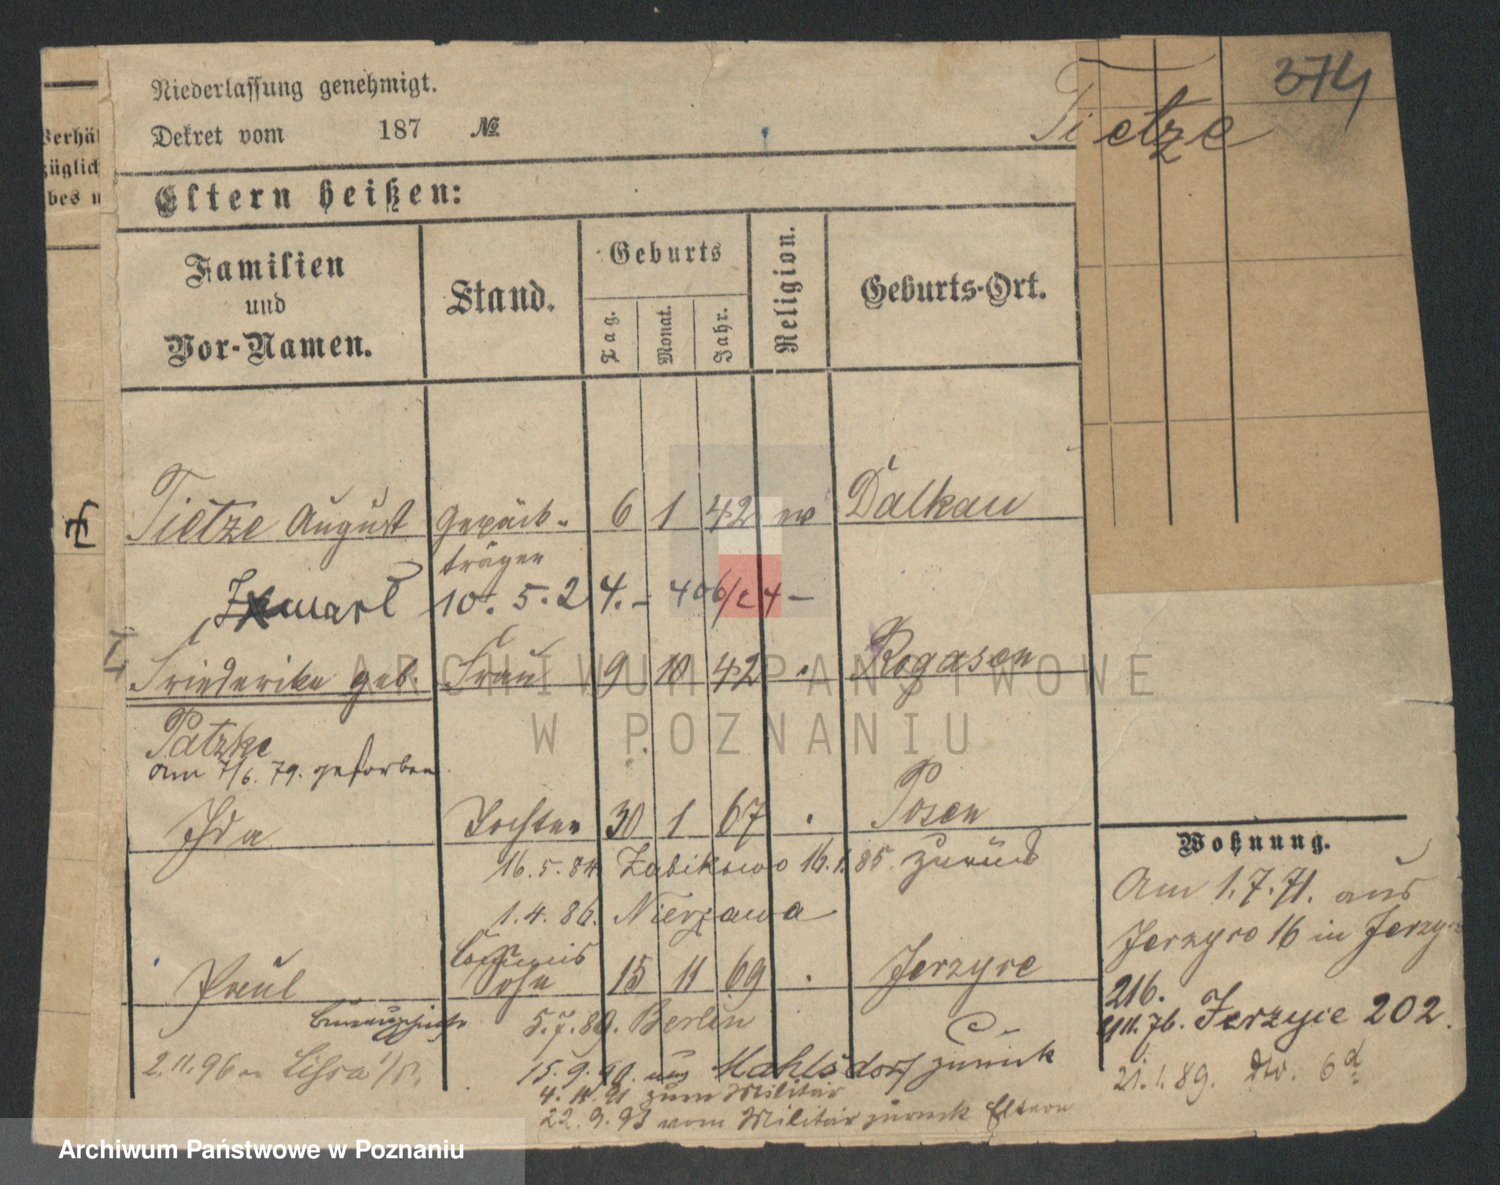 374
Niederlassung genehmigt.
Dekret vom 187 №
Tietze
Eltern heißen:
Familien
und
Vor-Namen.
Stand.
Geburts
Tag.
Monat.
Jahr.
Religion.
Geburts-Ort.
Tietze August Gepäck- 6 1 42 ev Dalkau
träger
10. 5. 24. -
Friederike geb. Frau 9 10 42 Rogasen
Patzke
am 7/6. 79. gestorben
Ida Tochter 30 1 67 Posen
16. 5. 84 Zabikowo 16.1.85. zurück
1. 4. 86.
Paul Sohn 15 11 69 Jerzyce
5.7.89. Berlin
2.11.96 Lissa
15.9.90. aus Mahlsdorf zurück
zum Militär
22.9.93 vom Militär zurück Eltern
Wohnung.
Am 1.7.71. aus
Jerzyce 16 in Jerzyce
216.
Jerzyce 202.
21.1.89.
Verhäl
züglich
des u
ARCHIWUM PAŃSTWOWE
W POZNANIU
Archiwum Państwowe w Poznaniu